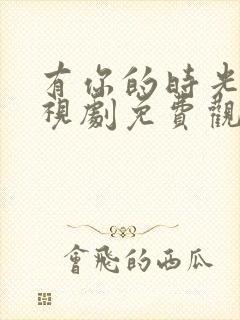 有你的時光
視劇免費觀
會飛的西瓜